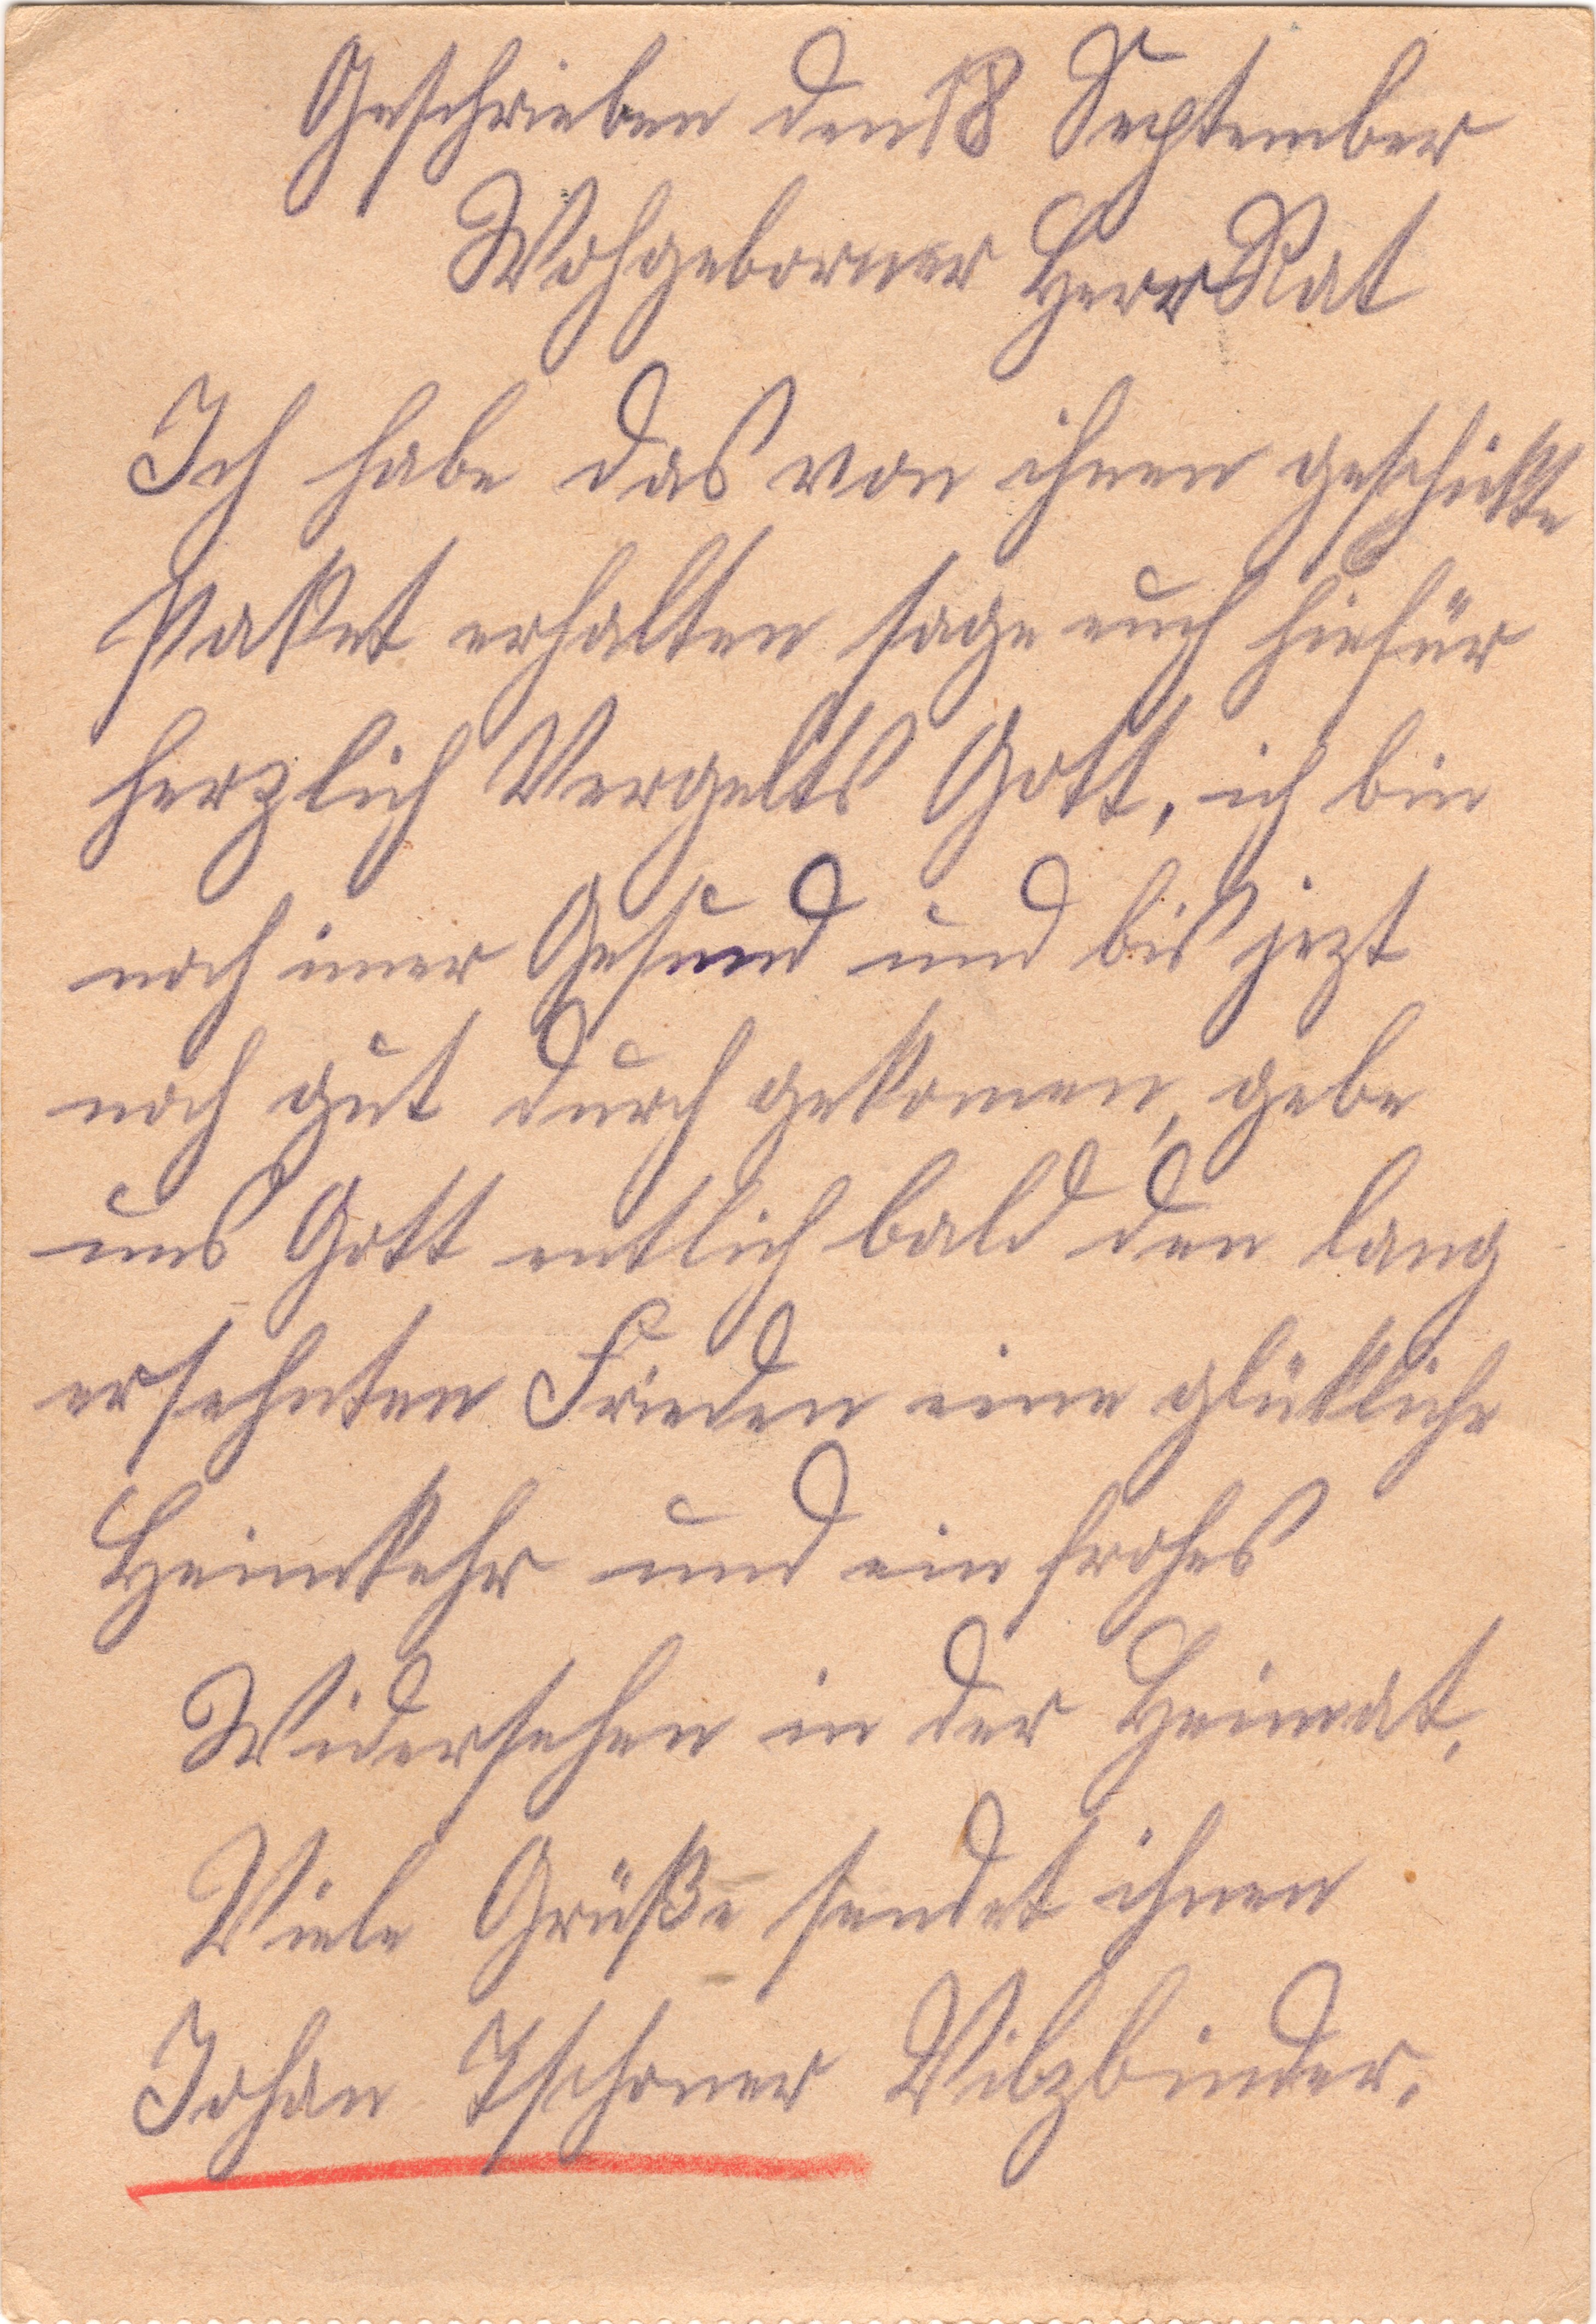 Geschrieben den 18 September
Wohgeborner Herr Rat
Ich habe das von ihnen geschikte
Paket erhalten sage euch hiefür
herzlich Vergelts Gott, ich bin
noch imer Gesund und bis jezt
noch gut durch gekomen, gebe
uns Gott entlich bald den lang
ersehnten Frieden eine glükliche
Heimkehr und ein frohes
Widersehen in der Heimat.
Viele Grüße sendet ihnen
Johan Tschoner